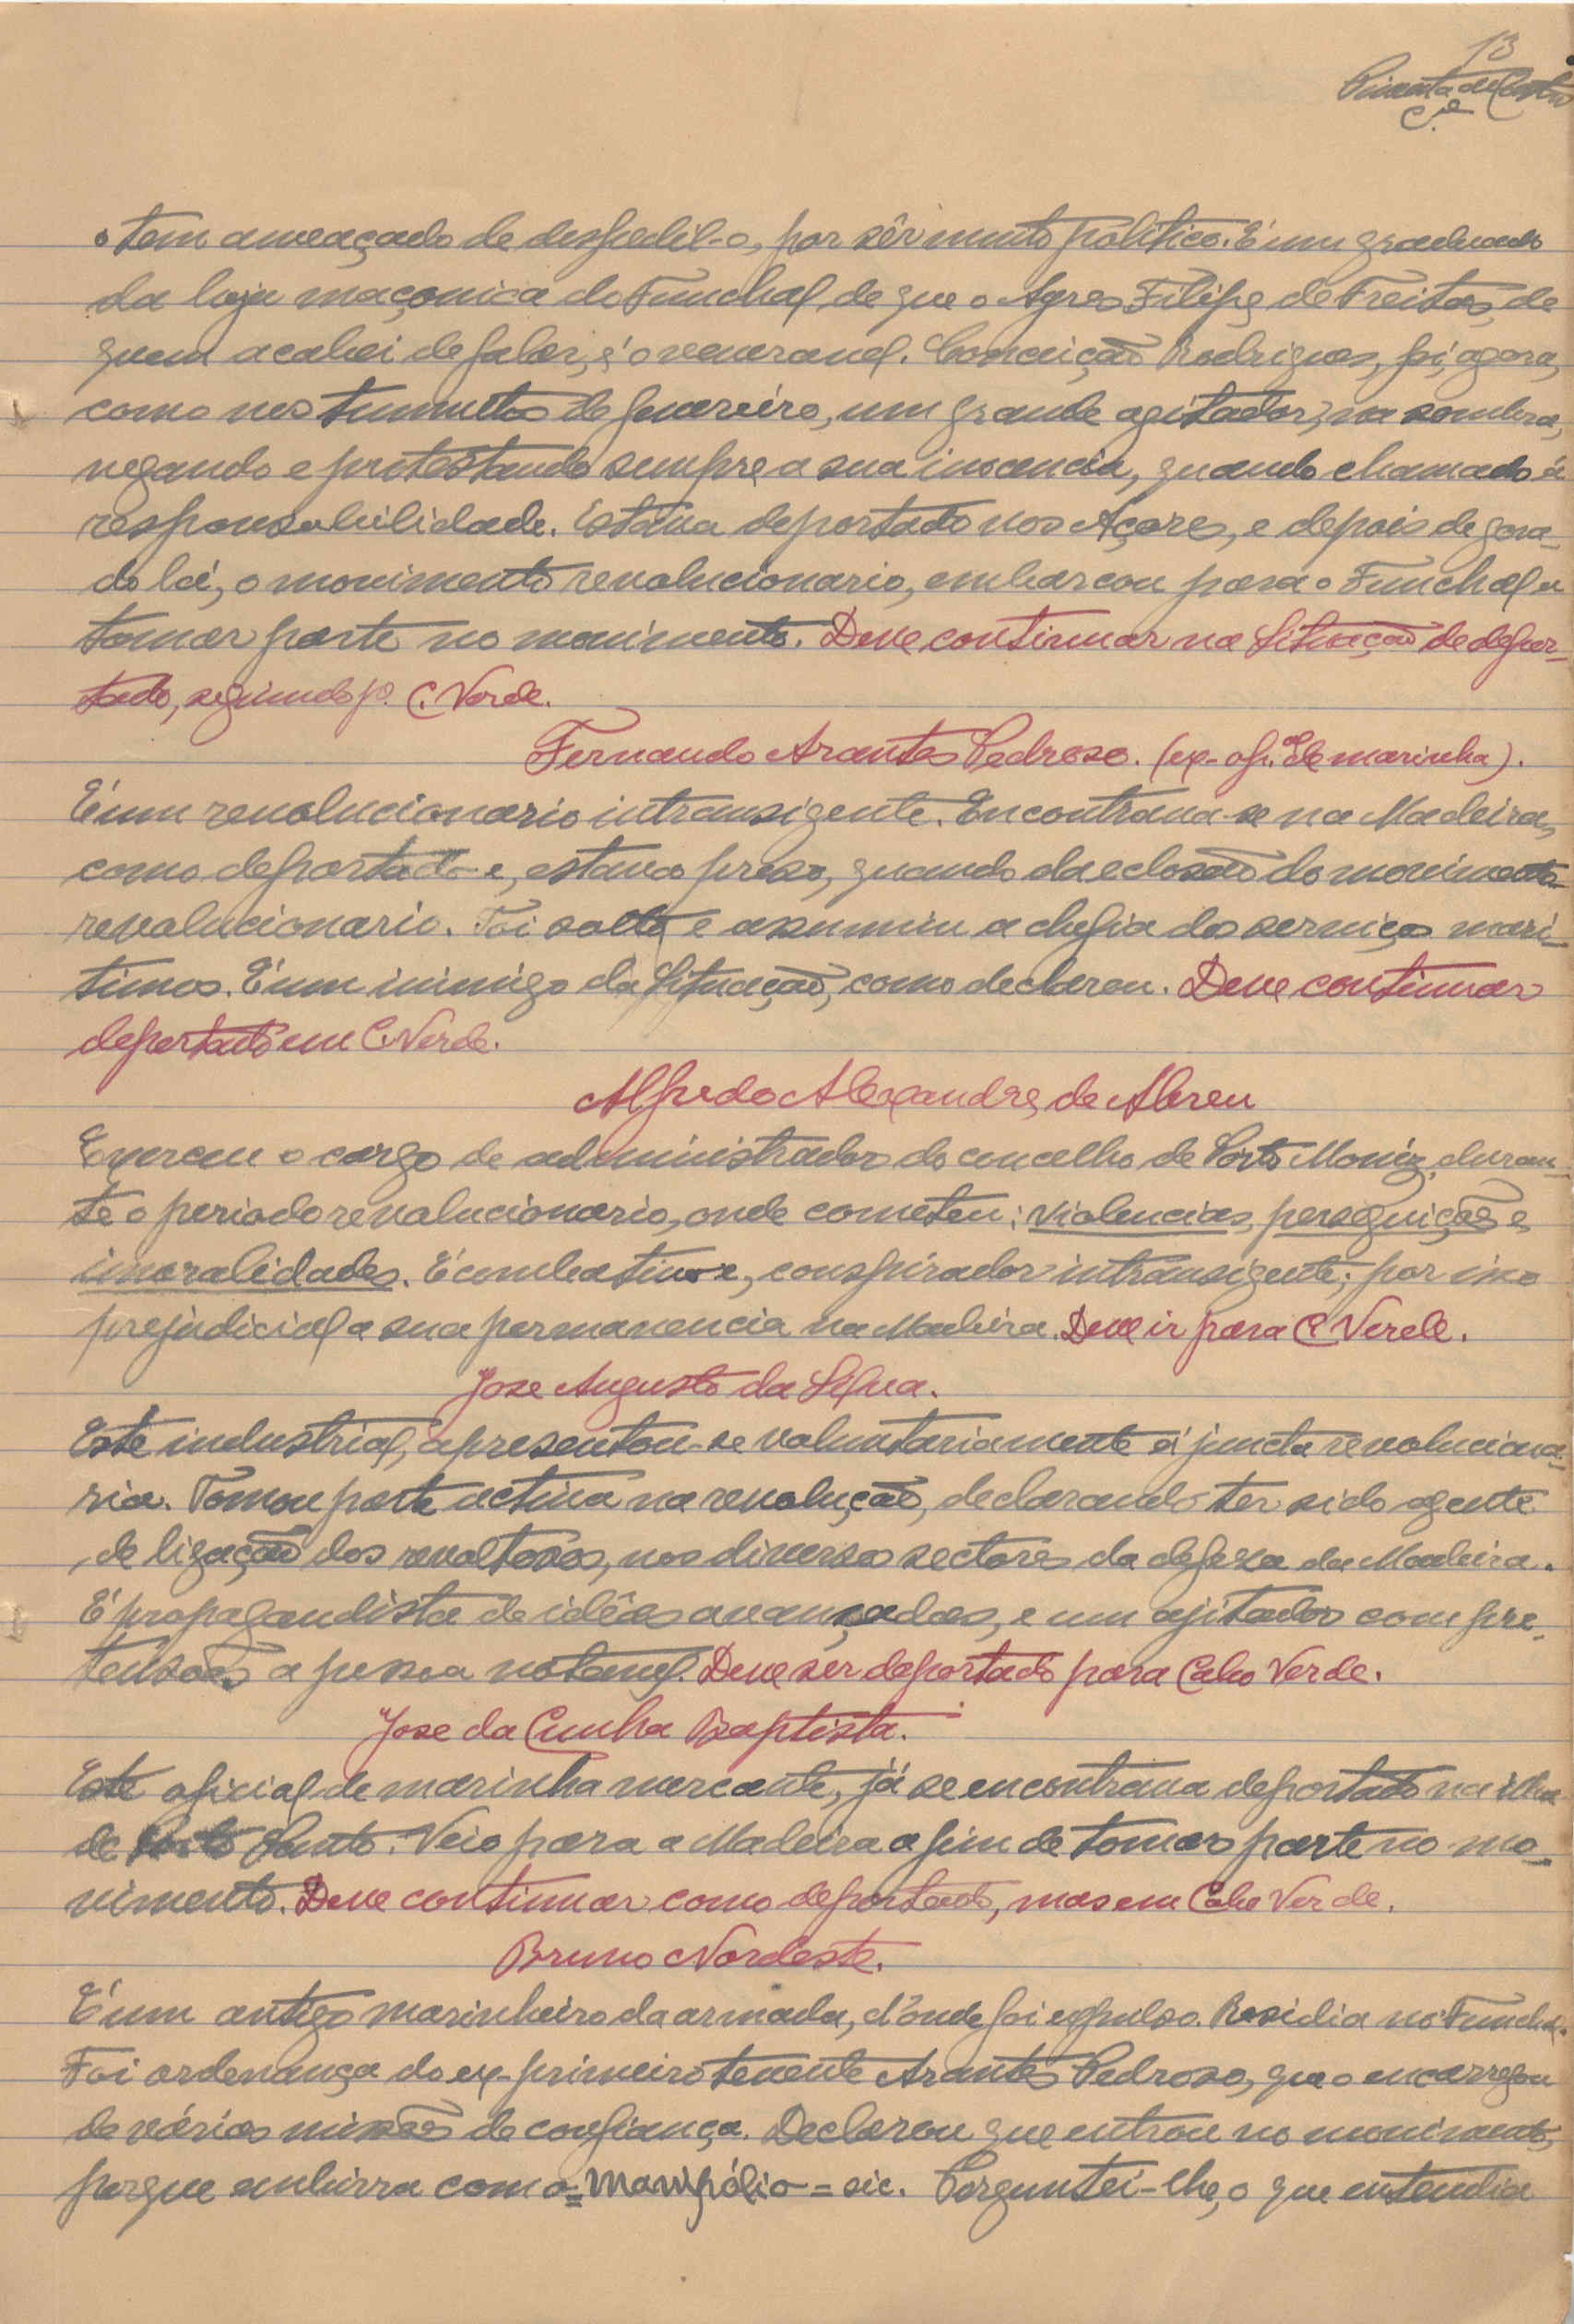 13
Pimenta de Castro
C.el
o tem ameaçado de despedil-o, por sêr muito politico. É um graduado
da loja maçonica do Funchal de que o Agres Filipe de Freitas, de
quem acabei de falar, é o veneravel. Conceição Rodrigues, foi, agora,
como nos tumultos de fevereiro, um grande agitador, na sombra,
negando e protestando sempre a sua inocencia, quando chamado á
responsabilidade. Estava deportado nos Açores, e depois de gora-
do lá, o movimento revolucionario, embarcou para o Funchal a
tomar parte no movimento. Deve continuar na situação de depor-
tado, seguindo p.ª C. Verde.
Fernando Arantes Pedroso. (ex-of.al de marinha).
É um revolucionario intransigente. Encontrava-se na Madeira,
como deportado e, estava preso, quando da eclosão do movimento
revolucionario. Foi solto e assumiu a chefia dos serviços mari-
timos. É um inimigo da Situação, como declarou. Deve continuar
deportado em C. Verde.
Alfredo Alexandre de Abreu
Exerceu o cargo de administrador do concelho de Porto Moniz, duran-
te o periodo revolucionario, onde cometeu: violencias, perseguições e
imoralidades. É combativo e, conspirador intransigente; por isso
prejudicial a sua permanencia na Madeira. Deve ir para C. Verde.
Jose Augusto da Silva.
Este industrial, apresentou-se voluntariamente á juncta revoluciona-
ria. Tomou parte activa na revolução, declarando ter sido agente
de ligação dos revoltosos, nos diversos sectores da defesa da Madeira.
É propagandista de idêas avançadas, e um ajitador com pre-
tensões a pessoa notavel. Deve ser deportado para Cabo Verde.
Jose da Cunha Baptista.
Este oficial de marinha mercante, já se encontrava deportado na ilha
de Porto Santo. Veio para a Madeira a fim de tomar parte no mo-
vimento. Deve continuar como deportado, mas em Cabo Verde.
Bruno Nordeste.
É um antigo marinheiro da armada, d'onde foi expulso. Residia no Funchal.
Foi ordenança do ex-primeiro tenente Arantes Pedroso, que o encarregou
de várias missões de confiança. Declarou que entrou no movimento,
porque embirra com o = manipólio = sic. Perguntei-lhe, o que entendia